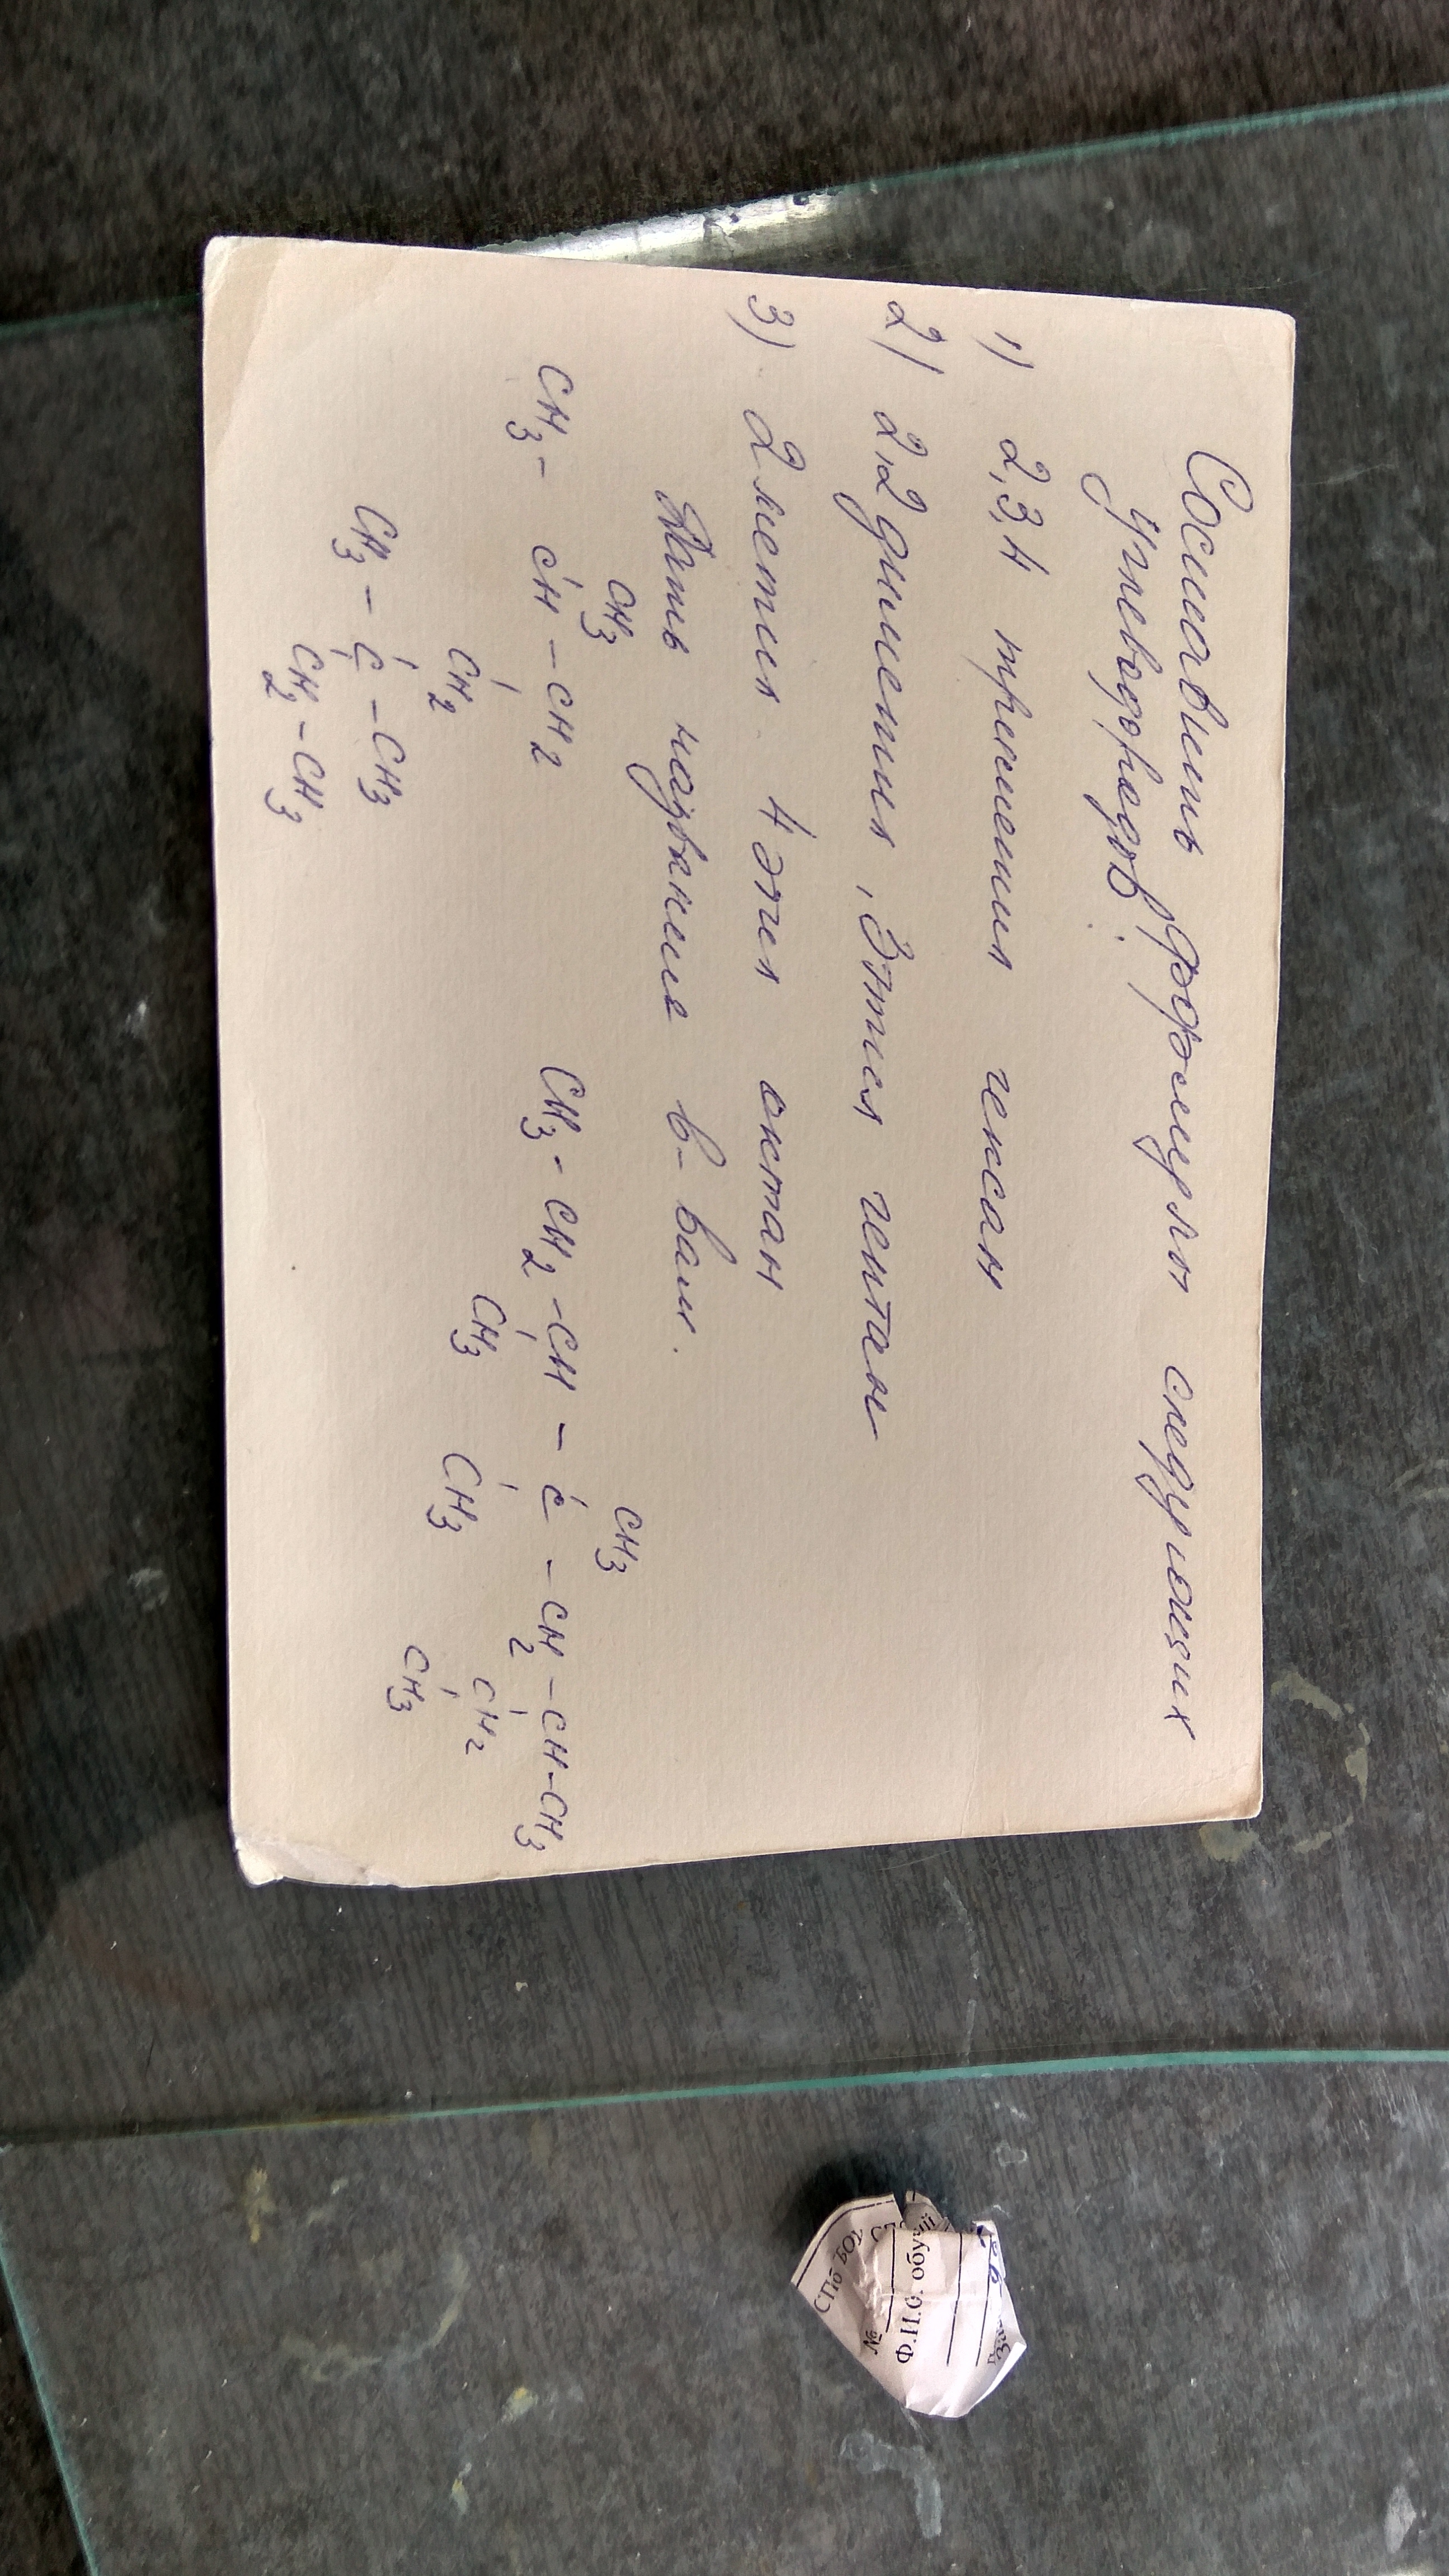 Составить формулы следующих
углеводородов:
1) 2,3,4 триметил гексан
2) 2,2 диметил, 3этил гептан
3) 2 метил 4 этил октан
Дать название в-вам.
CH3 CH3
CH3 - CH - CH2 CH3 - CH2 - CH - C - CH2 - CH - CH3
CH2 CH3 CH3 CH2
CH3 - C - CH3 CH3
CH2 - CH3
СПб БОУ
№
Ф.И.О. обу